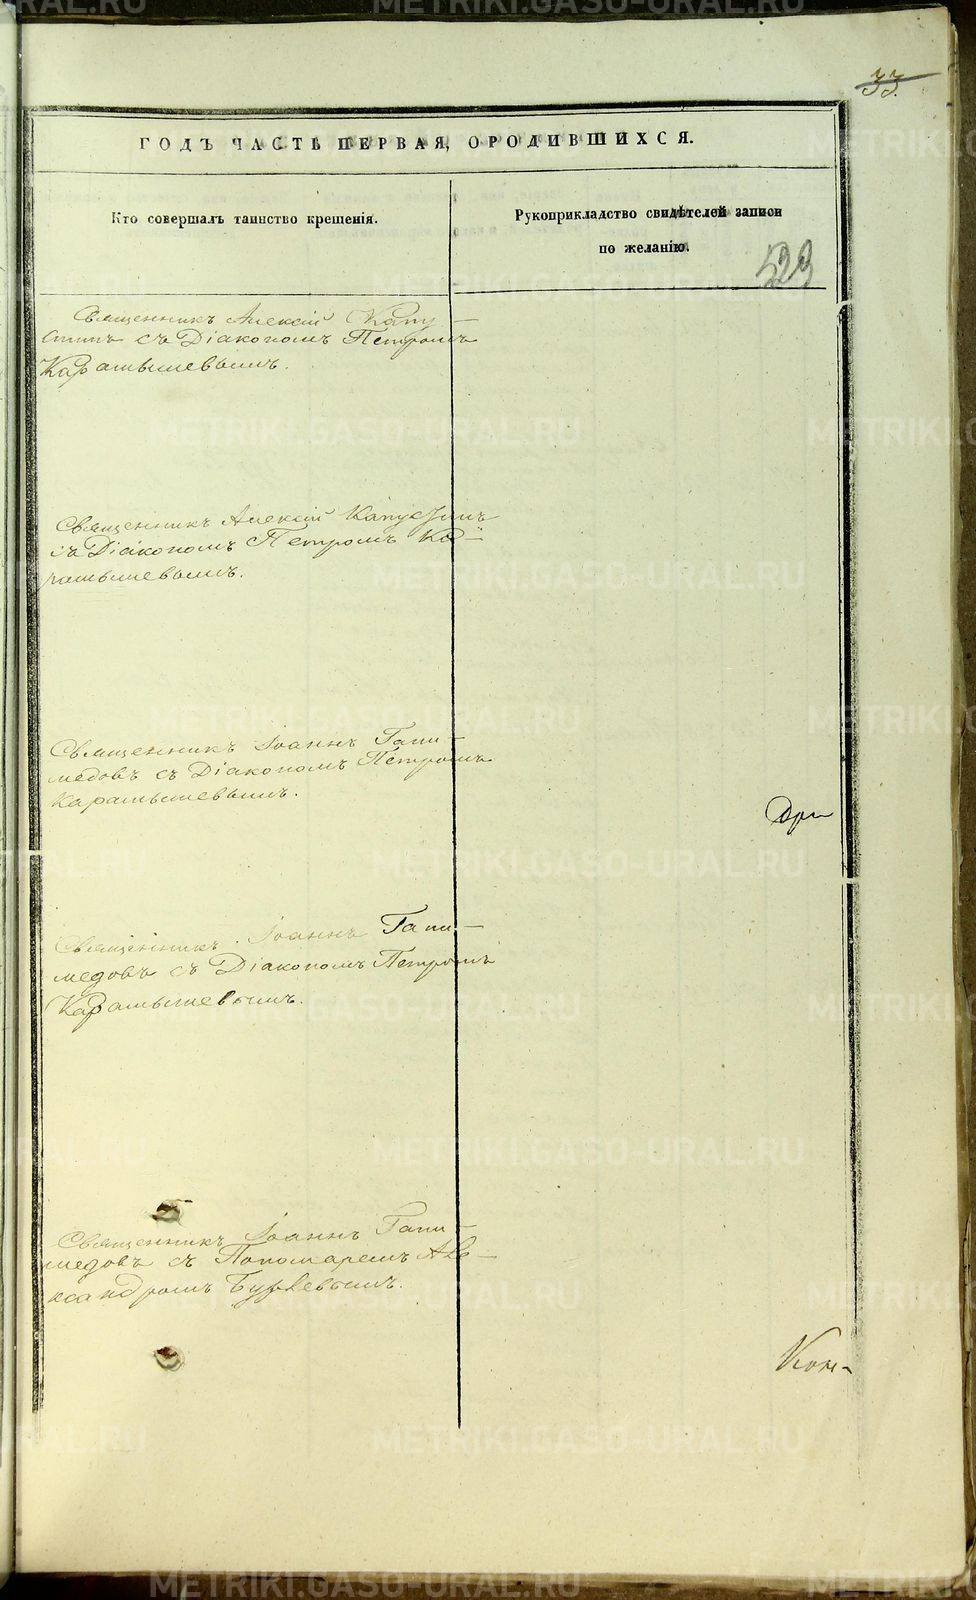 33.
ГОДЪ ЧАСТЬ ПЕРВАЯ, О РОДИВШИХСЯ.
Кто совершалъ таинство крещенія.
Рукоприкладство свидѣтелей записи
по желанію.
529
Священникъ Алексій Капу-
стинъ съ Діакономъ Петромъ
Карамышевымъ.
Священникъ Алексій Капустинъ
съ Діакономъ Петромъ Ка-
рамышевымъ.
Священникъ Іоаннъ Гани-
медовъ съ Діакономъ Петромъ
Карамышевымъ.
Священникъ Іоаннъ Гани-
медовъ съ Діакономъ Петромъ
Карамышевымъ.
Священникъ Іоаннъ Гани-
медовъ съ Пономаремъ Але-
ксандромъ
METRIKI.GASO-URAL.RU